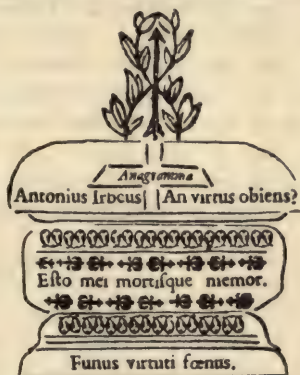 Anagramma
Antonius Irbcus An virtus obiens?
Eſto mei mortiſque memor.
Funus virtuti fœnus.